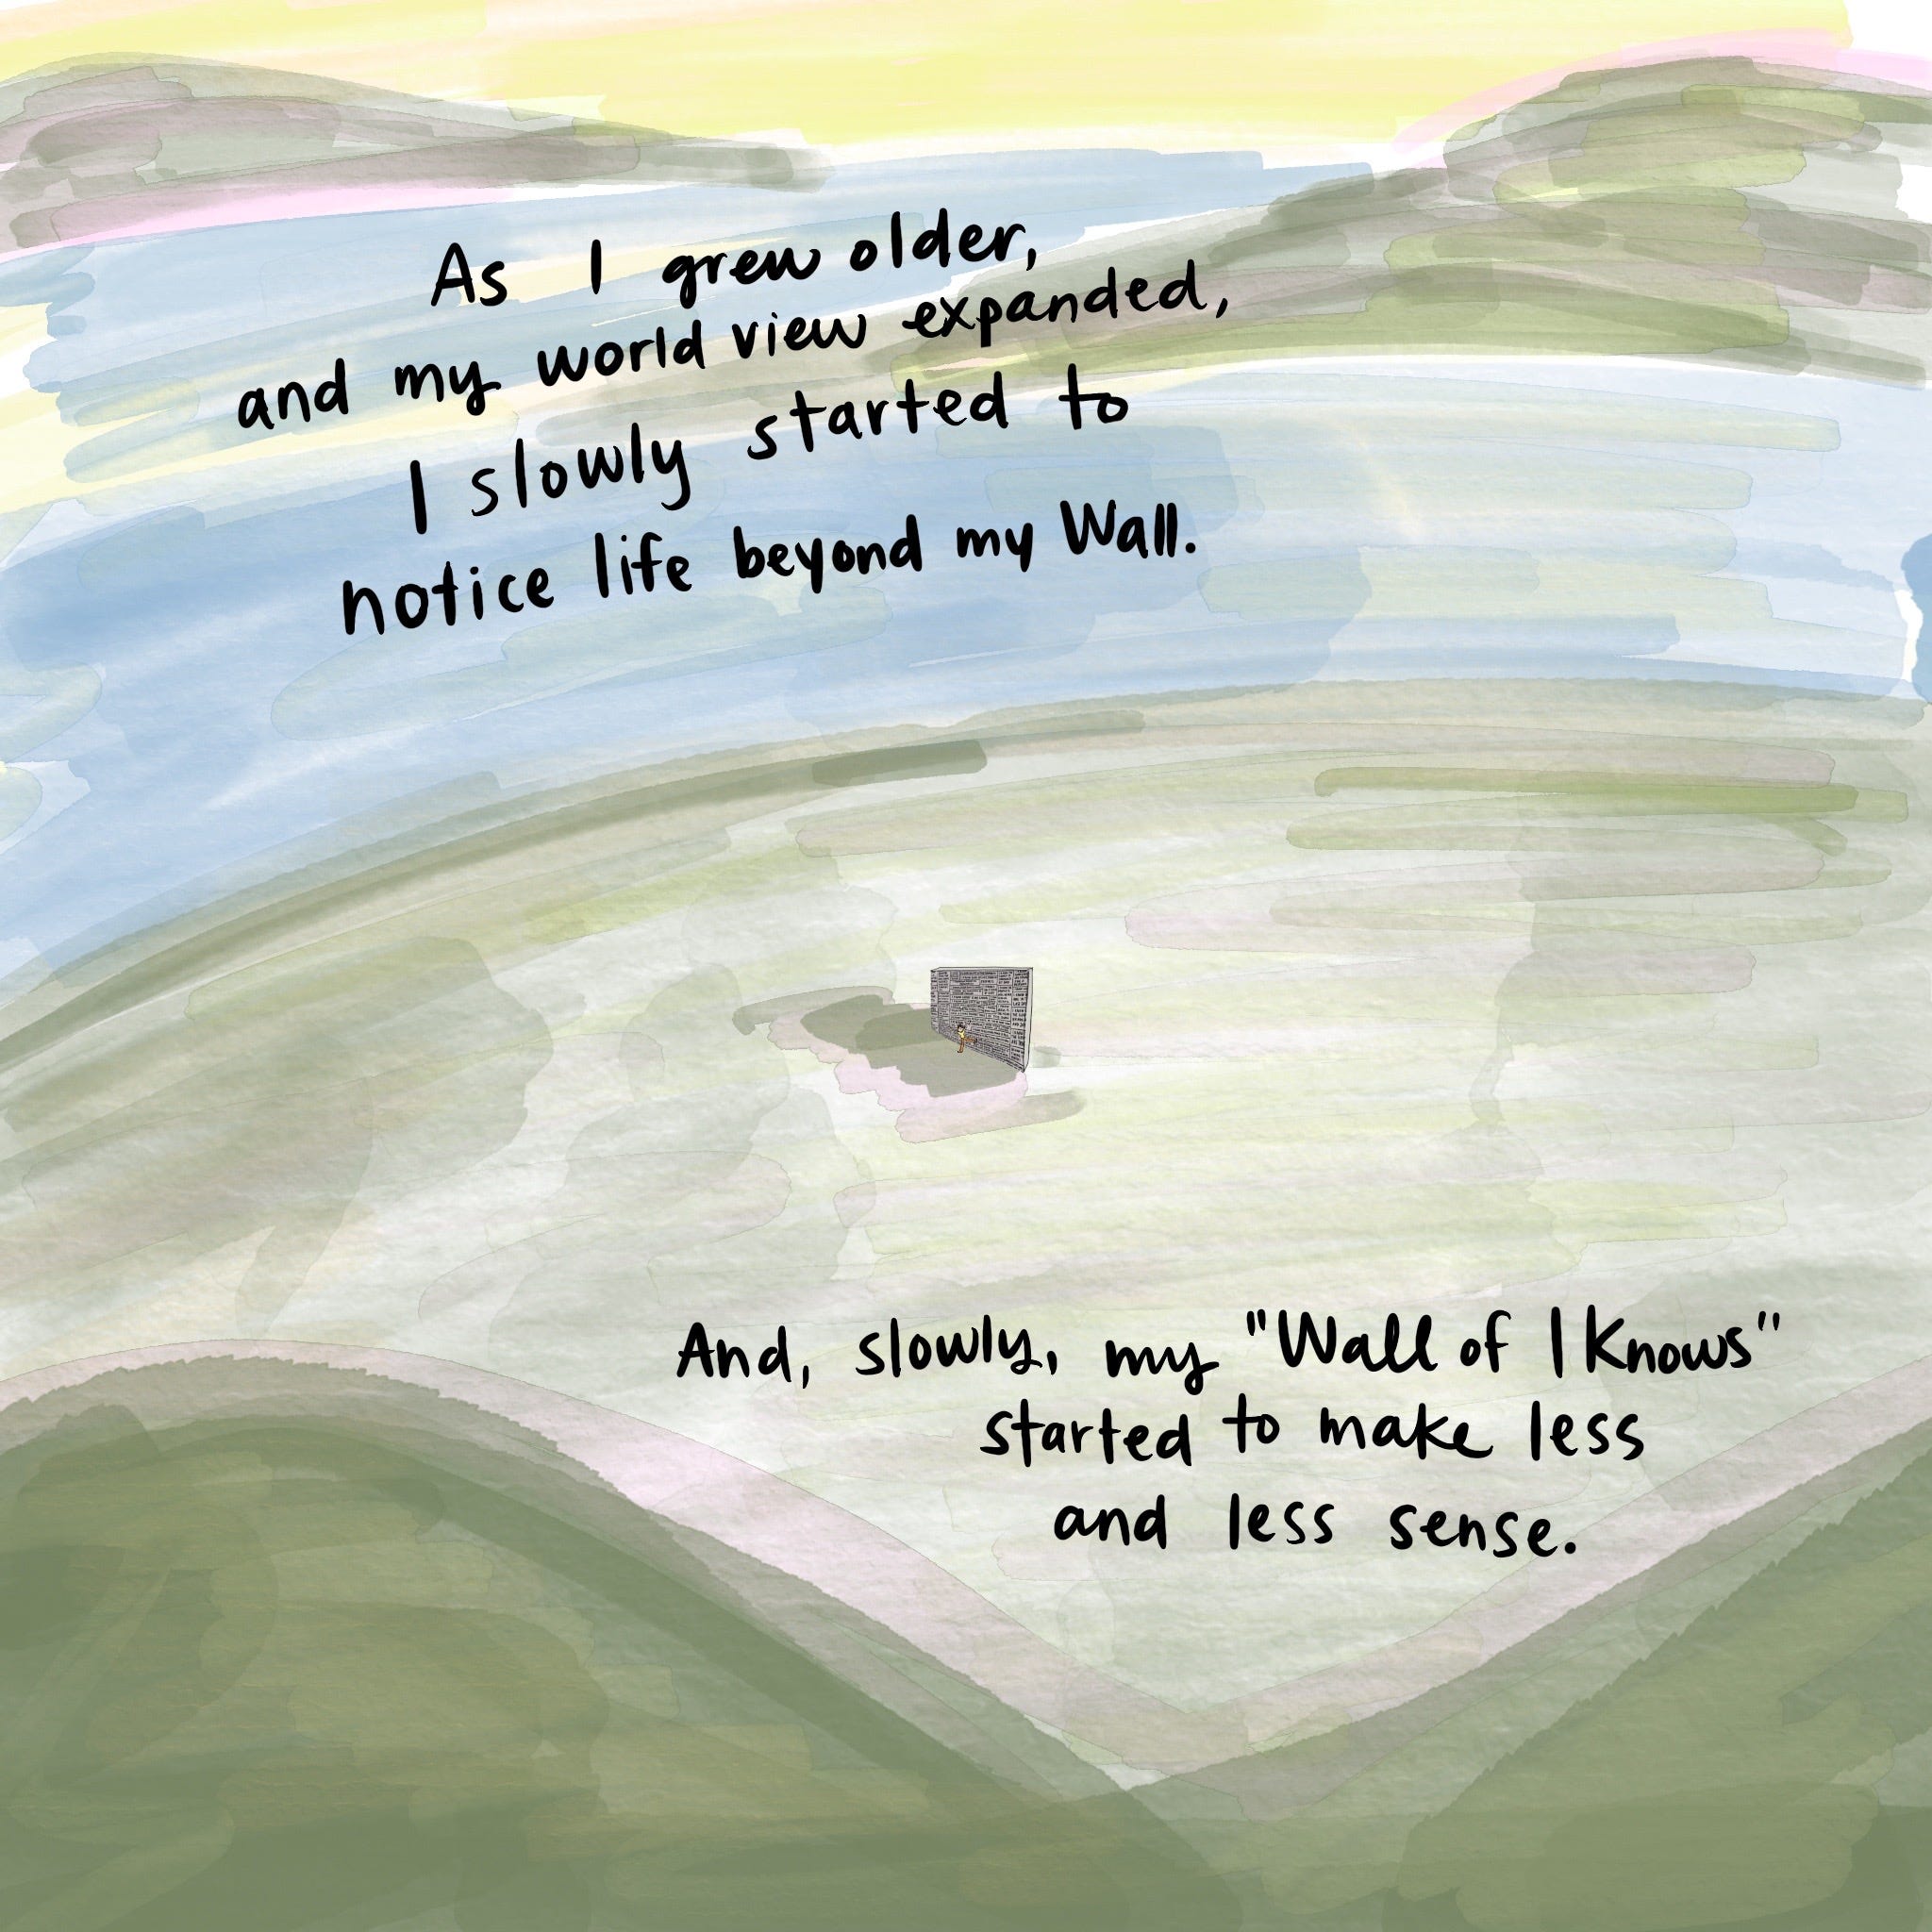 As I grew older,
and my world view expanded,
I slowly started to
notice life beyond my Wall.
And, slowly, my "Wall of I Knows"
started to make less
and less sense.